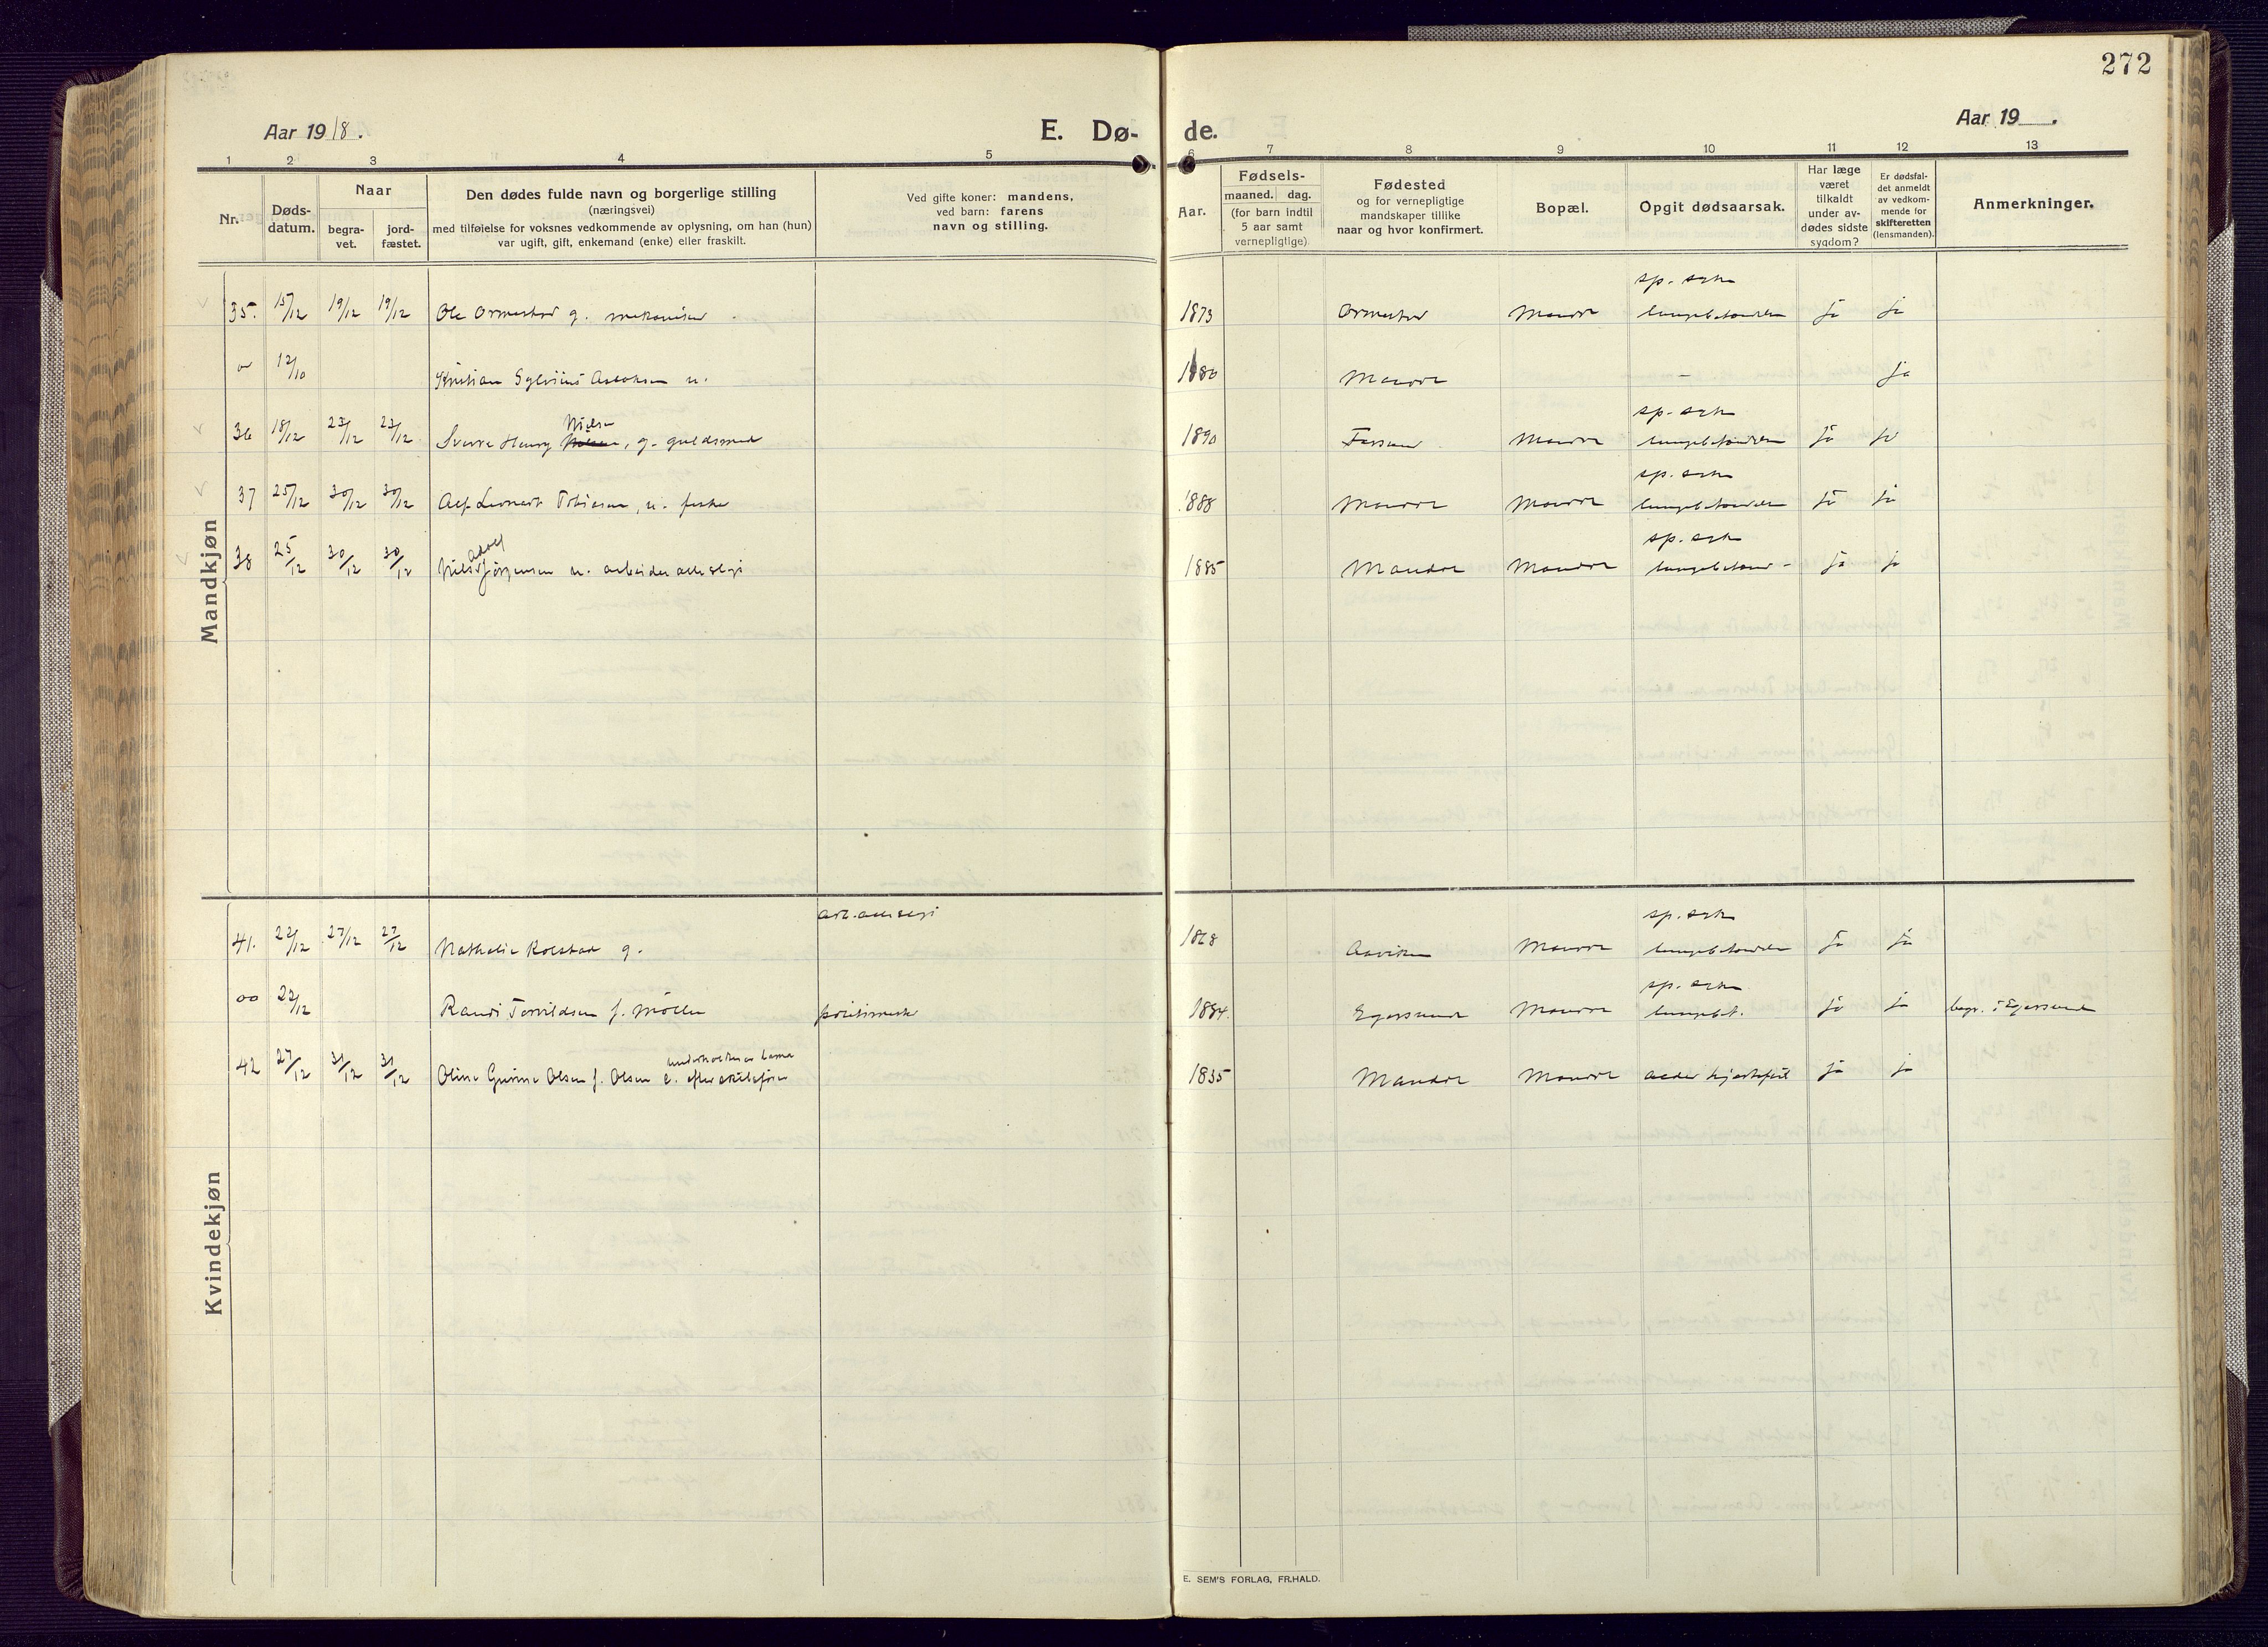 272
Aar 1918.
E. Dø- de.
Aar 19 .
1 2 3 4 5 6 7 8 9 10 11 12 13
Nr.
Døds-
datum.
Naar
begra-
vet.
jord-
fæstet.
Den dødes fulde navn og borgerlige stilling
(næringsvei)
med tilføielse for voksnes vedkommende av oplysning, om han (hun)
var ugift, gift, enkemand (enke) eller fraskilt.
Ved gifte koner: mandens,
ved barn: farens
navn og stilling.
Aar.
Fødsels-
maaned. dag.
(for barn indtil
5 aar samt
vernepligtige)
Fødested
og for vernepligtige
mandskaper tillike
naar og hvor konfirmert.
Bopæl.
Opgit dødsaarsak.
Har læge
været
tilkaldt
under av-
dødes sidste
sygdom?
Er dødsfal-
det anmeldt
av vedkom-
mende for
skifteretten
(lensmanden).
Anmerkninger.
Mandkjøn
sp. syke
35. 15/12 19/12 19/12 Ole Ormestad g. mekaniker 1873 Ormestad Mandal lungebetændelse ja ja
12/10 Kristian Sylvius Aslaksen u. 1880 Mandal - ja
Nielsen sp. syke
36 18/12 23/12 23/12 Sverre Henry , g. guldsmed 1890 Farsund Mandal lungebetændelse ja ja
sp. syke
37 25/12 30/12 30/12 Alf Leonart Tobiesen, u. fisker 1888 Mandal Mandal lungebetændelse ja ja
Adolf sp. syke
38 25/12 30/12 30/12 Nils Jörgensen u. arbeider 1885 Mandal Mandal lungebetænd- ja ja
Kvindekjøn
sp. syke
41. 22/12 27/12 27/12 Nathalie Rolstad g. 1868 Mandal lungebetændelse ja ja
sp. syke
00 22/12 Randi Torvildsen f. Möller politimester 1884. Egersund Mandal lungebet. ja ja begr. i Egersund
42 27/12 31/12 31/12 Oline Gurine Olsen f. Olsen e. efter skibsfører 1835 Mandal Mandal ælder hjertefeil ja ja
E. SEM'S FORLAG, FR.HALD.